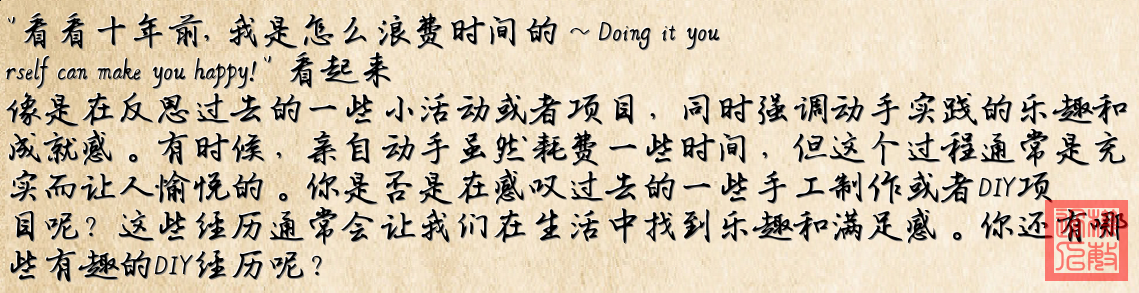 "看看十年前, 我是怎么浪费时间的 ~ Doing it you
rself can make you happy!" 看起来
像是在反思过去的一些小活动或者项目，同时强调动手实践的乐趣和
成就感。有时候，亲自动手虽然耗费一些时间，但这个过程通常是充
实而让人愉悦的。你是否是在感叹过去的一些手工制作或者DIY项
目呢？这些经历通常会让我们在生活中找到乐趣和满足感。你还有哪
些有趣的DIY经历呢？